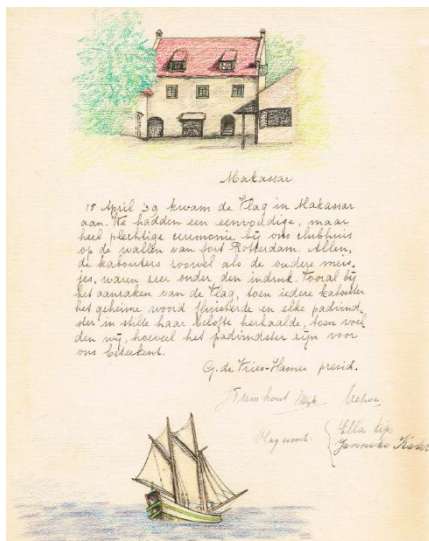 Makassar
15 April 39 kwam de Vlag in Makassar
aan. We hadden een eenvoudige, maar
heel plechtige ceremonie bij ons clubhuis
op de wallen van fort Rotterdam. Allen,
de kabouters zoowel als de oudere meis-
jes, waren zeer onder den indruk. Vooral bij
het aanraken van de Vlag, toen iedere kabouter
het geheime woord fluisterde en elke padvind-
ster in stilte haar belofte herhaalde, toen voel-
den wij, hoeveel het padvindster zijn voor
ons beteekent.
G. de Vries-Hamer presid.
Ella Kip
Janneke